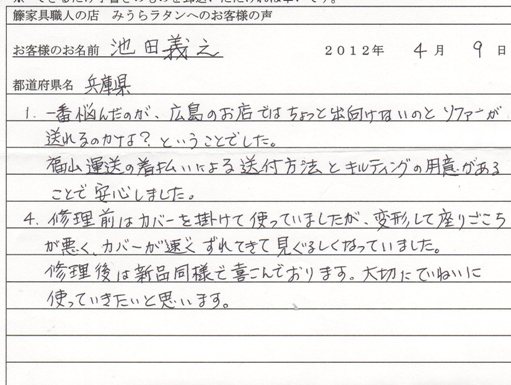 籐家具職人の店 みうらラタンへのお客様の声
お客様のお名前 池田義之 2012年 4月 9日
都道府県名 兵庫県
1. 一番悩んだのが、広島のお店ではちょっと出向けないのと ソファーが
送れるのかな？ということでした。
福山運送の着払いによる送付方法とキルティングの用意がある
ことで安心しました。
4. 修理前はカバーを掛けて使っていましたが、変形して座りごこち
が悪く、カバーが速く ずれてきて見ぐるしくなっていました。
修理後は新品同様で喜こんでおります。大切にていねいに
使っていきたいと思います。